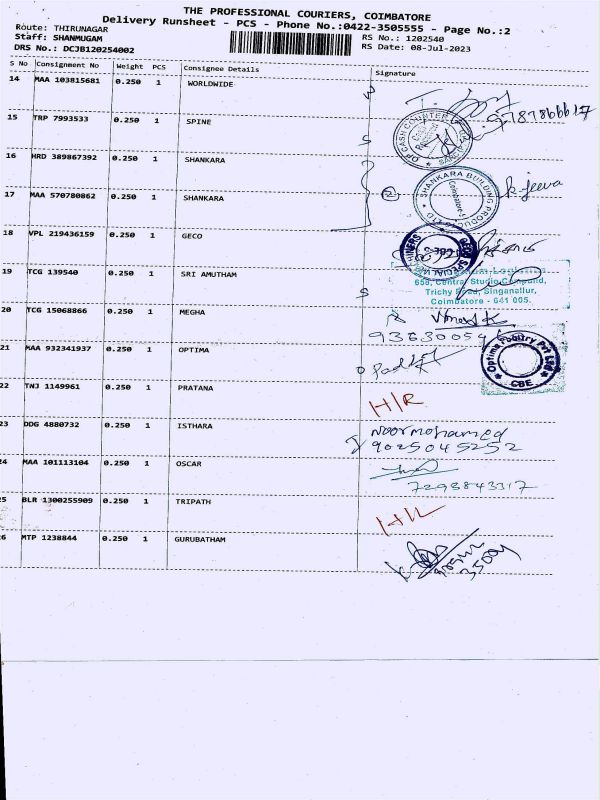 THE PROFESSIONAL COURIERS, COIMBATORE
Delivery Runsheet - PCS - Phone No.:0422-3505555 - Page No.:2
Route: THIRUNAGAR
Staff: SHANMUGAM
RS No.: 1202540
DRS No.: DCJB120254002
RS Date: 08-Jul-2023
S No Consignment No Weight PCS Consignee Details Signature
14 MAA 103815681 0.250 1 WORLDWIDE
15 TRP 7993533 0.250 1 SPINE
16 HRD 389867392 0.250 1 SHANKARA
SHANKARA BUILDING PRODUCTS LTD
Coimbatore-1
k-jeeva
17 MAA 570780862 0.250 1 SHANKARA
18 VPL 219436159 0.250 1 GECO
GECO SPECIAL MACHINERS
19 TCG 139540 0.250 1 SRI AMUTHAM
658, Central Studio Compound,
Trichy Road, Singanallur,
Coimbatore - 641 005.
20 TCG 15068866 0.250 1 MEGHA
21 MAA 932341937 0.250 1 OPTIMA
Optima Poultry Pvt Ltd
CBE
22 TNJ 1149961 0.250 1 PRATANA
H/R
23 DDG 4880732 0.250 1 ISTHARA
Noormohamed
9025045252
24 MAA 101113104 0.250 1 OSCAR
7293843317
25 BLR 1300255909 0.250 1 TRIPATH
26 MTP 1238844 0.250 1 GURUBATHAM